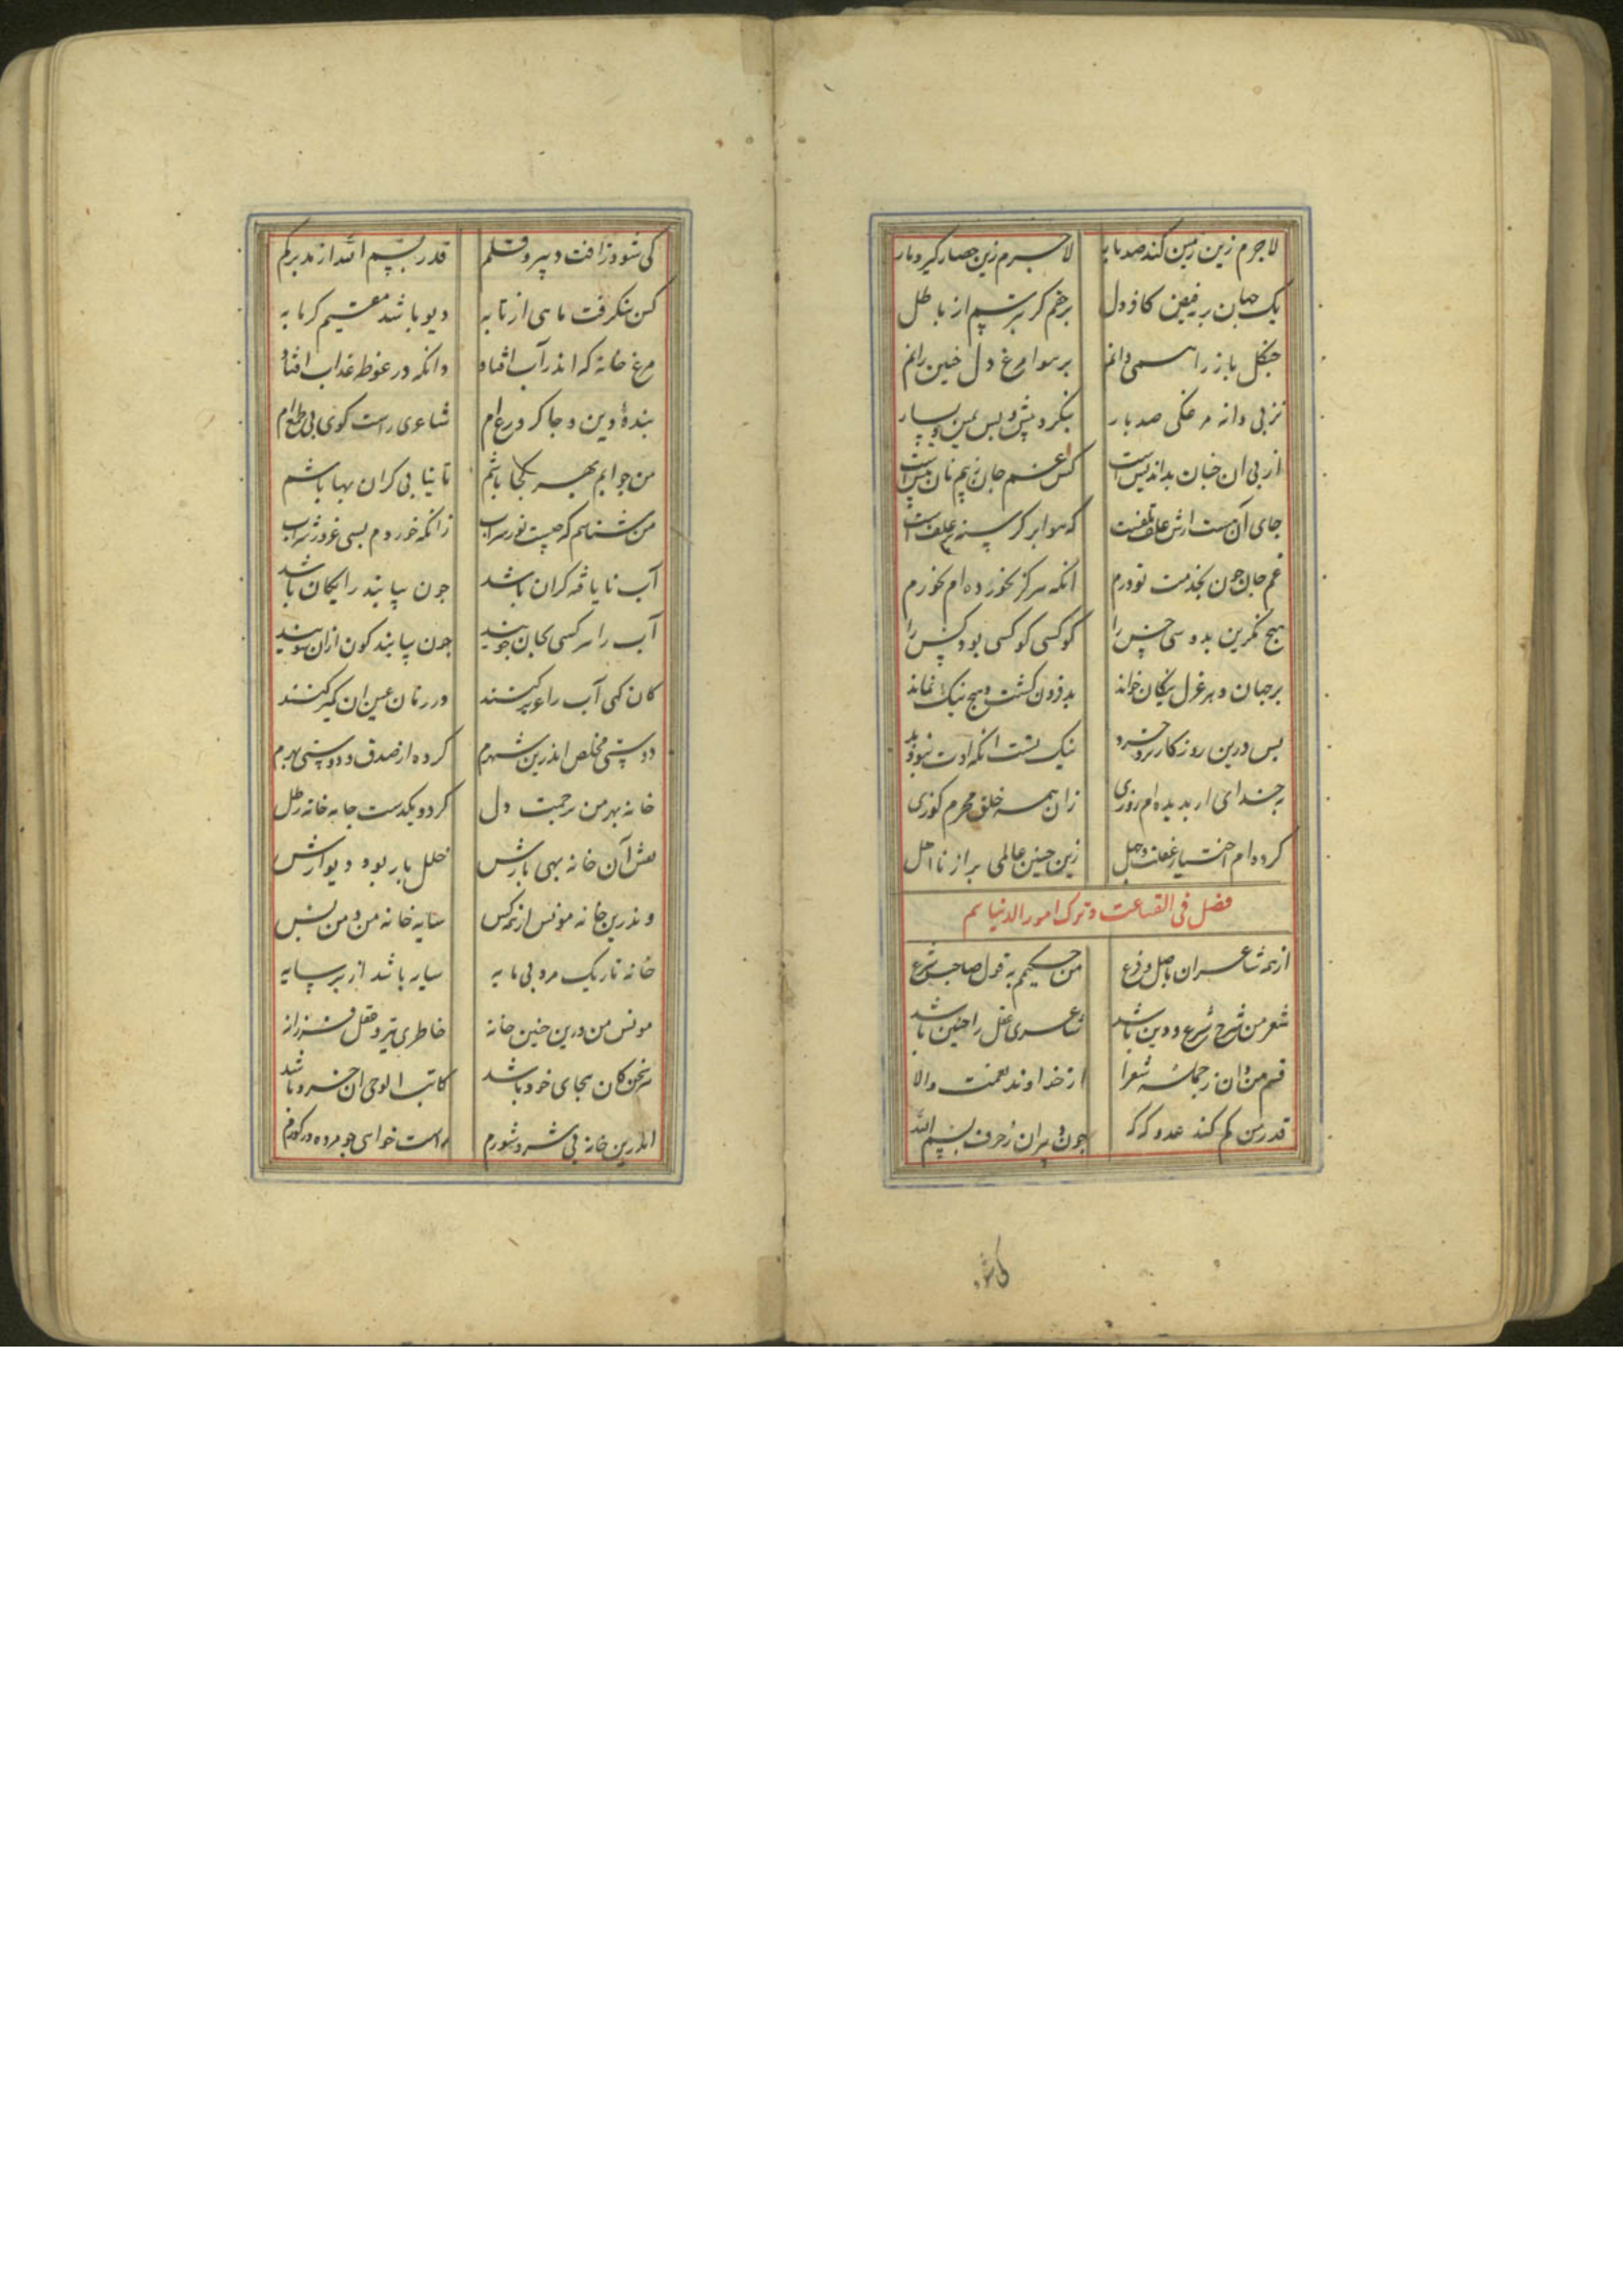 لاجرم زین زمین کند صد بار لاجرم زین حصار گیرد مار
یک جهان پر فیض کافر دل برخم کر بترسم از باطل
جنکل باز را همی دانم بر هوا مرغ دل چنین رانم
نز پی دانه مرغکی صد بار بنکرد پیش و پس یمین و یسار
از پی آن جنان بداندیش است کش غم جان ز بیم نان بیش است
جای آن هست ارش علف تلفست که هوا بر کرسنه علف است
غم جان جون بخدمت تو درم انکه هرکز نخورده ام بخورم
هیج نکزین بدوسی خس را کو کسی کو کسی بود کس را
برجهان دهر غزل نیکان خواند بد فزون کشت و هیج نیک نماند
بس درین روزکار نیک نیست انکه اوت
بخدای ار بدیده ام روزی زان همه خلق محرم کوزی
کرده ام اختیار غفلت و جهل زین جنین عالمی پر از نا اهل
فصل فی القناعت و ترک امور الدنیا
از همه شاعران باصل و فرع من حکیمم به قول صاحب شرع
شعر من شرح شرع و دین باشد شاعری عقل را جنین باشد
قسم من دان ز جمله شعرا از خداوند نعمت والا
قدر من کم کند عدو که که جون دبیران ز حرف بسم الله
کی شو
کی شود ز آفت دبیر و قلم قدر بسم الله از مدبر کم
کس نکرفت ماهی از تابه دیو باشد مقیم کرمابه
مرغ خانه که اندر آب افتاد وانکه در غوطه عذاب افتاد
بنده دین و جاکر ورع ام شاعری راست کوی بی طمع ام
من جو ایم بهر کجا باشم تا نیابی کران بها باشم
من شناسم که جیست نور سراب زانکه خوردم بسی غرور شراب
آب نایافه کران باشد جون بیابند رایکان باشد
آب را هر کسی بجان جویند جون بیابند کون ازان شویند
کان کهی آب را عزیز کنند در زمان عین آن کمیز کنند
دوستی مخلص اندرین شهرم کرده از صدق و دوستی بهرم
خانه بهر من ز رحمت دل کرد و یکدست جابه خانه ز ظل
نقش آن خانه بهی بارش خلل بار بود دیوارش
وندرین خانه مونس از همه کس سایه خانه من و من بس
خانه تاریک مرد بی مایه سایه باشد از بر سایه
مونس من درین جنین خانه خاطری تیز و عقل فرزانه
هر سخن کان بجای خود باشد کاتب الوحی آن خرد باشد
اندرین خانه بی شر و شورم راست خواهی جو مرده در کورم